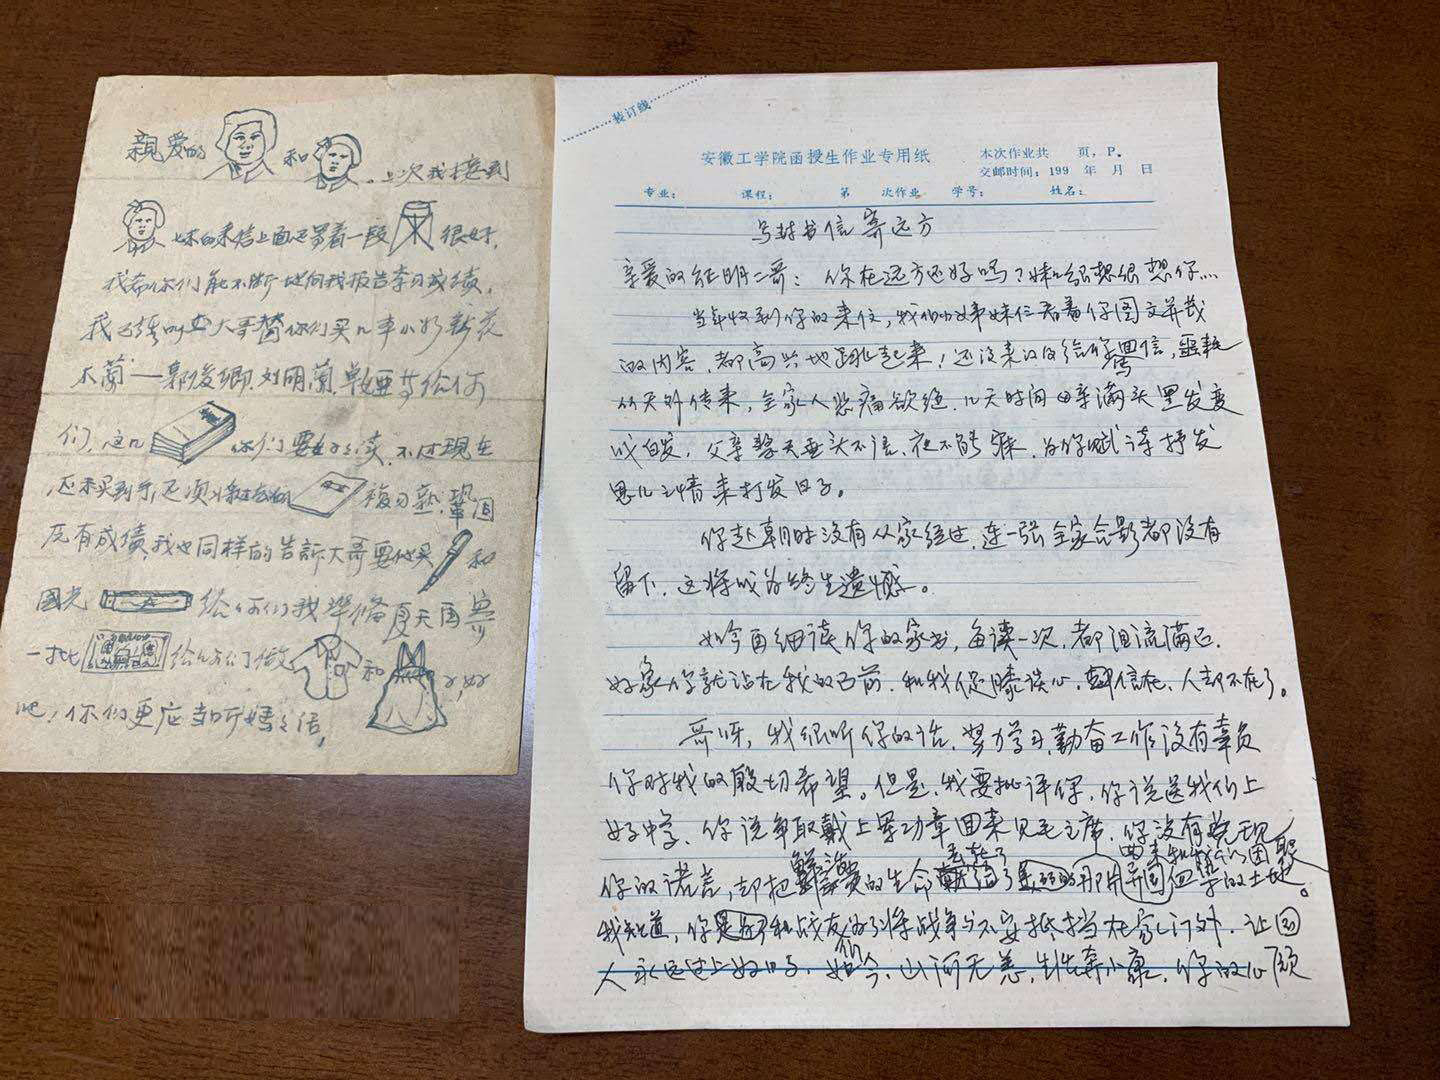 親爱的 和 ，上次我接到
妹的来信上面还署着一段 很好，
我希你们能不断地向我报告学习成绩，
我已经叫 大哥替你们买几本小好新花
木蘭——郭俊卿，刘明蘭， 给你
们，这几 你们要好好读，不过现在
还未买到手，还须将 復习熟，鞏固
后有成绩，我也同样的告訴大哥要他买 和
國光 给你们我準備夏天再寄
一批 给你们做 和
吧，你们更应当听妈之话，
装订线
安徽工学院函授生作业专用纸
本次作业共 页，P。
交邮时间：199 年 月 日
专业： 课程： 第 次作业 学号： 姓名：
写封书信寄远方
亲爱的征明二哥：你在远方还好吗？妹妹很想很想你…
当年收到你的来信，我们姊妹仨看着你图文并茂
的内容，都高兴地跳起来！还没来以及给你写信，噩耗
从天外传来，全家人悲痛欲绝，几天时间母亲满头黑发变
成白发，父亲整天垂头不语，夜不能寐，为你赋诗抒发
思儿之情来打发日子。
你赴朝时没有从家经过，连一张全家合影都没有
留下，这将成为终生遗憾。
如今再细读你的家书，每读一次，都泪流满面，
好象你就站在我的面前，和我促膝谈心，信在，人却不在了。
哥呀，我很听你的话，努力学习，勤奋工作没有辜负
你对我的殷切希望。但是，我要批评你，你说送我们上
好中学，你说争取戴上军功章回来见毛主席，你没有兑现
你的诺言，却把 的生命 了 那片异国 的土地。
我知道，你 和战友为了将战争与不安抵挡在家门外，让国
人永远过上好日子，如今，山河无恙， 奔小康，你的心愿